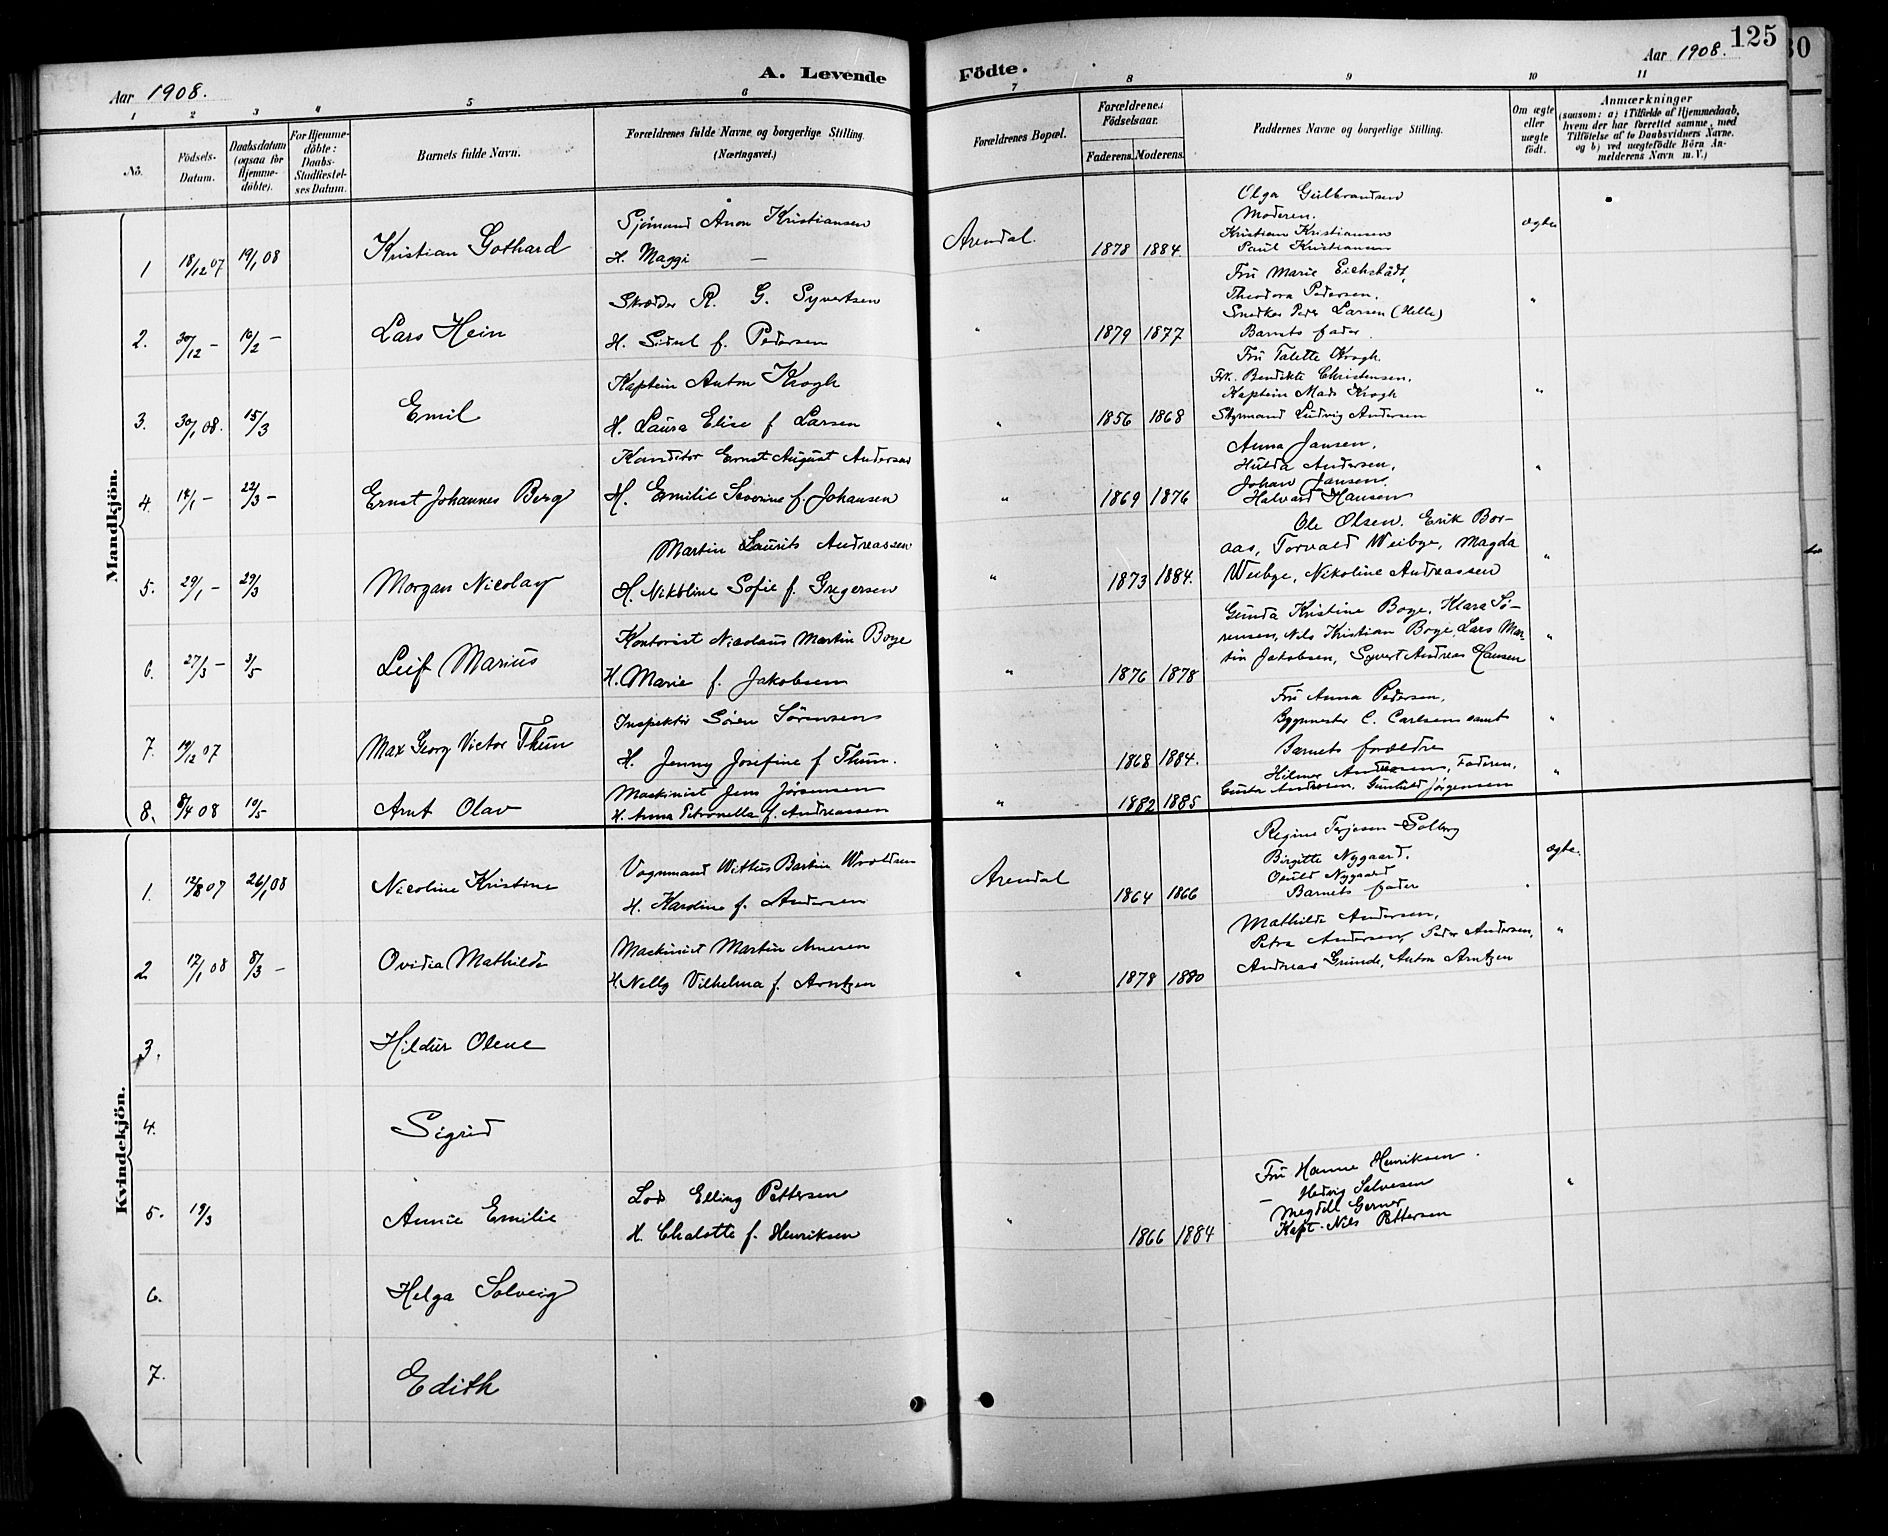 Aar 1908.
A. Levende Födte.
Aar 1908.
125
30
1 2 3 4 5 6 7 8 9 10 11
No.
Födsels-Datum.
Daabsdatum (ogsaa for Hjemmedöbte).
For Hjemmedöbte: Daabs-Stadfestelses Datum.
Barnets fulde Navn.
Forældrenes fulde Navne og borgerlige Stilling. (Næringsvei.)
Forældrenes Bopæl.
Forældrenes Födselsaar.
Faderens. Moderens.
Faddernes Navne og borgerlige Stilling.
Om ægte eller uægte födt.
Anmærkninger
(saasom: a) i Tilfælde af Hjemmedaab, hvem der har forrettet samme, med Tilföielse af to Daabsvidners Navne. og b) ved uægtefödte Börn Anmelderens Navn m. V.)
Mandkjön.
1 18/12 07 19/1 08 Kristian Gothard
Sjömand Aron Kristiansen
H. Maggi —
Arendal. 1878 1884.
Olga Gulbrandsen
Moderen.
Kristian Kristiansen
Paul Kristiansen
ægte
2. 30/12 – 16/2 – Lars Hein
Skrædder R. G. Syvertsen
H. Sidsel f. Pedersen
" 1879 1877
Fru Marie Eichstädt,
Theodora Pedersen,
Snedker Peder Larsen (Helle)
Barnets fader.
"
3. 30/1 08. 15/3 Emil
Kaptein Anton Krogh
H. Laura Elise f Larsen
" 1856 1868
Fru Talette Krogh.
Frk. Bendikte Christensen.
Kaptein Mads Krogh
Styrmand Ludvig Andersen
"
4. 14/1 – 22/3 – Ernst Johannes Berg
Konditor Ernst August Andersen
H. Emilie Severine f. Johansen
" 1869 1876
Anna Jansen,
Hulda Andersen,
Johan Jansen.
Halvard Hansen
"
5. 29/1 – 29/3 Morgan Nicolay
Martin Laurits Andreassen
H. Nikoline Sofie f. Gregersen
" 1873 1884.
Ole Olsen. Erik Bor-
aas, Torvald Weibye, Magda
Weibye, Nikoline Andreassen
"
6. 27/3 – 3/5 Leif Marius
Kontorist Nicolaus Martin Boye
H. Marie f. Jakobsen
" 1876 1878
Gunda Kristine Boye, Klara Sö-
rensen, Nils Kristian Boye, Lars Mar-
tin Jakobsen, Syvert Andreas Hansen
"
7. 19/12 07 Max Georg Victor Thun
Inspektör Sören Sörensen
H. Jenny Josefine f Thun.
" 1868 1884.
Fru Anna Pedersen,
Bygmester C. Carlsen samt
Barnets forældre
"
8. 8/4 08 10/5 Arnt Olav
Maskinist Jens Jørgensen
H. Anna Petronella f. Andreassen
" 1882 1885
Hilmer Andresen, Faderen,
Gusta Andresen, Gunhild Jørgensen
"
Kvindekjön.
1. 12/8 07 26/1 08 Nicoline Kristine
Vognmand Wittus Bartin
H. Karoline f. Andersen
Arendal 1864 1866
Regine Terjesen Solberg
Birgitte Nygaard.
Nygaard
Barnets fader
ægte.
2 12/1 08 8/3 – Ovidia Mathilde
Maskinist Martin Arnesen
H. Nelly Vilhelma f. Arntzen
" 1878 1880
Mathilde Andersen,
Petra Andersen, Peder Andersen,
Andreas Grunde, Anton Arntzen
"
3. Hildur Olene
4. Sigrid
5. 19/3 Annie Emilie
Lods Elling Pettersen
H. Chalotte f. Henriksen
" 1866 1884
Fru Hanne Henriksen.
— Hedvig Salvesen
Megdell Gerner
Kapt. Nils Pettersen
"
6. Helga Solveig
7. Edith